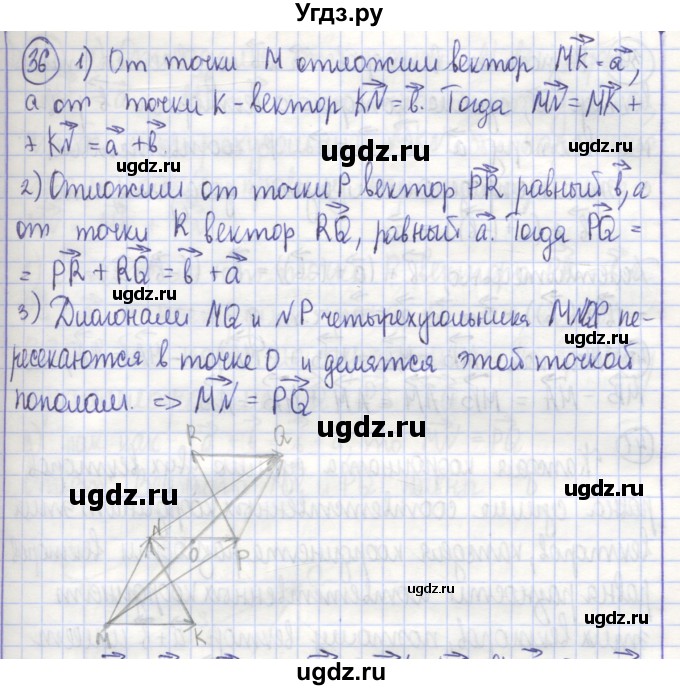 Угдз.ру
36 1) От точки M отложим вектор MK = a,
а от точки K - вектор KN = b. Тогда MN = MK +
+ KN = a + b.
ugdz.ru ugdz.ru
ugdz.ru
2) Отложим от точки P вектор PR равный b, а
от точки R вектор RQ, равный a. Тогда PQ =
= PR + RQ = b + a
ugdz.ru ugdz.ru
3) Диагонали MQ и NP четырехугольника MNQP пе-
ресекаются в точке O и делятся этой точкой
пополам. => MN = PQ
ugdz.ru
R Q
ugdz.ru
N O P
ugdz.ru
M K
ugdz.ru
ugdz.ru